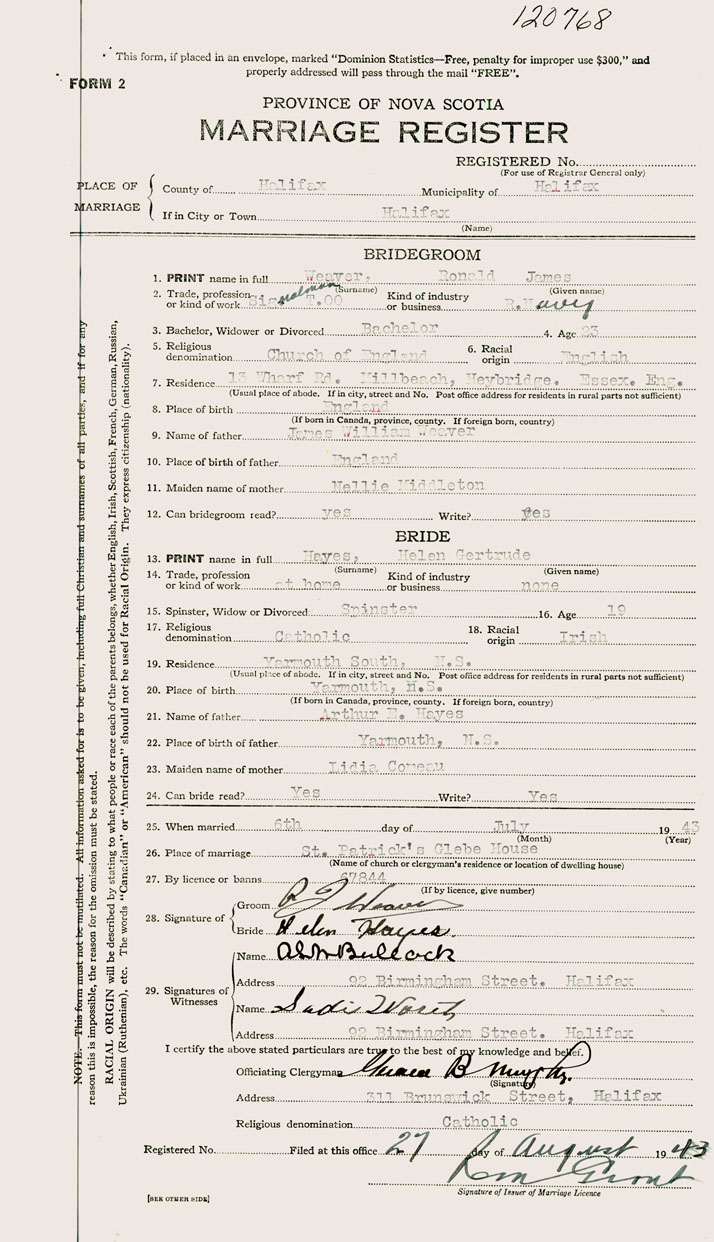 120768
This form, if placed in an envelope, marked "Dominion Statistics—Free, penalty for improper use $300," and
properly addressed will pass through the mail "FREE".
FORM 2
PROVINCE OF NOVA SCOTIA
MARRIAGE REGISTER
REGISTERED No.
(For use of Registrar General only)
PLACE OF MARRIAGE
County of Halifax Municipality of Halifax
If in City or Town Halifax
(Name)
BRIDEGROOM
1. PRINT name in full Weaver, Ronald James
(Surname) (Given name)
2. Trade, profession or kind of work Signalman T.OO Kind of industry or business R.Navy
3. Bachelor, Widower or Divorced Bachelor 4. Age 23
5. Religious denomination Church of England 6. Racial origin English
7. Residence 13 Wharf Rd. Millbeach, Heybridge. Essex. Eng.
(Usual place of abode. If in city, street and No. Post office address for residents in rural parts not sufficient)
8. Place of birth England
(If born in Canada, province, county. If foreign born, country)
9. Name of father James William Weaver
10. Place of birth of father England
11. Maiden name of mother Nellie Middleton
12. Can bridegroom read? yes Write? yes
BRIDE
13. PRINT name in full Hayes, Helen Gertrude
(Surname) (Given name)
14. Trade, profession or kind of work at home Kind of industry or business none
15. Spinster, Widow or Divorced Spinster 16. Age 19
17. Religious denomination Catholic 18. Racial origin Irish
19. Residence Yarmouth South, N.S.
(Usual place of abode. If in city, street and No. Post office address for residents in rural parts not sufficient)
20. Place of birth Yarmouth, N.S.
(If born in Canada, province, county. If foreign born, country)
21. Name of father Arthur E. Hayes
22. Place of birth of father Yarmouth, N.S.
23. Maiden name of mother Lidia Comeau
24. Can bride read? Yes Write? Yes
25. When married 6th day of July 19 43
(Month) (Year)
26. Place of marriage St. Patrick's Glebe House
(Name of church or clergyman's residence or location of dwelling house)
27. By licence or banns 67844
(If by licence, give number)
28. Signature of
Groom R J Weaver
Bride Helen Hayes.
29. Signatures of Witnesses
Name Bullock
Address 92 Birmingham Street. Halifax
Name Sadie
Address 92 Birmingham Street. Halifax
I certify the above stated particulars are true to the best of my knowledge and belief.
Officiating Clergyman B Murphy.
(Signature)
Address 311 Brunswick Street, Halifax
Religious denomination Catholic
Registered No. Filed at this office 27 day of August 19 43
Signature of Issuer of Marriage Licence
[SEE OTHER SIDE]
NOTE.—This form must not be mutilated. All information asked for is to be given, including full Christian and surnames of all parties, and if for any
reason this is impossible, the reason for the omission must be stated.
RACIAL ORIGIN will be described by stating to what people or race each of the parents belongs, whether English, Irish, Scottish, French, German, Russian,
Ukrainian (Ruthenian), etc. The words "Canadian" or "American" should not be used for Racial Origin. They express citizenship (nationality).